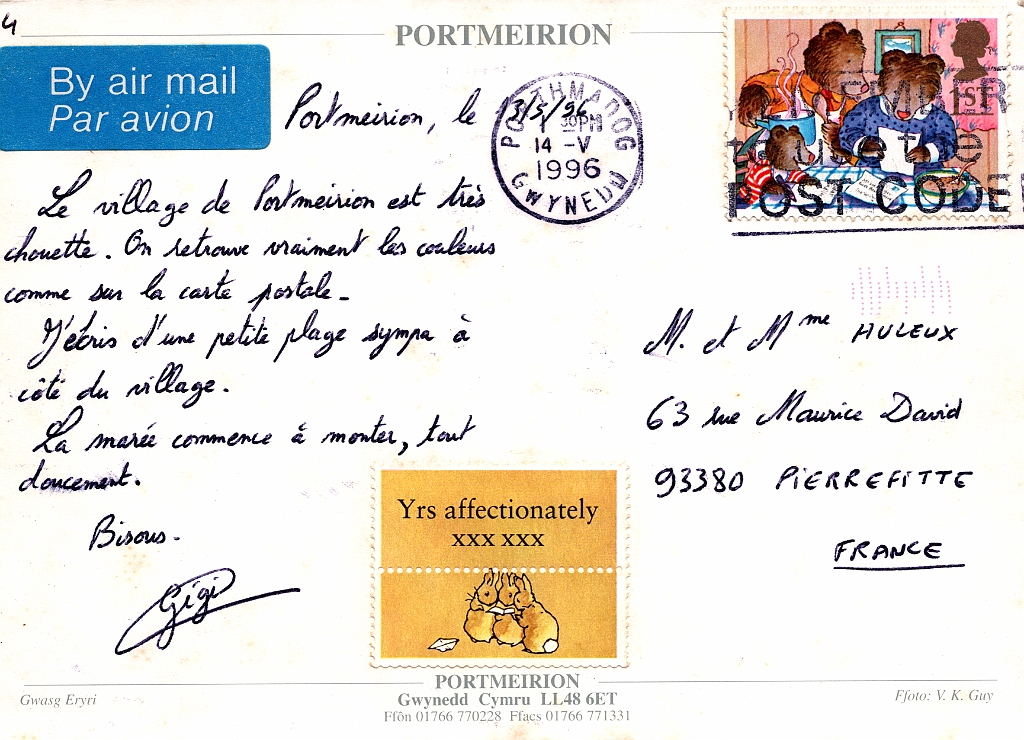 4
PORTMEIRION
By air mail
Par avion
Portmeirion, le 13/5/96
PORTHMADOG
1 30PM
14 -V
1996
GWYNEDD
1ST
POST CODE
Le village de Portmeirion est très
chouette. On retrouve vraiment les couleurs
comme sur la carte postale.
J'écris d'une petite plage sympa à
côté du village.
La marée commence à monter, tout
doucement.
Bisous.
Gigi
M. et Mme HULEUX
63 rue Maurice David
93380 PIERREFITTE
FRANCE
Yrs affectionately
xxx xxx
PORTMEIRION
Gwynedd Cymru LL48 6ET
Ffôn 01766 770228 Ffacs 01766 771331
Gwasg Eryri
Ffoto: V. K. Guy